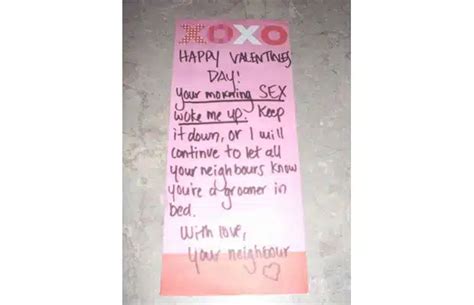 XOXO
HAPPY VALENTINES
DAY!
Your morning SEX
woke me up. Keep
it down, or I will
continue to let all
your neighbours know
you're a groaner in
bed.
With love,
Your neighbour